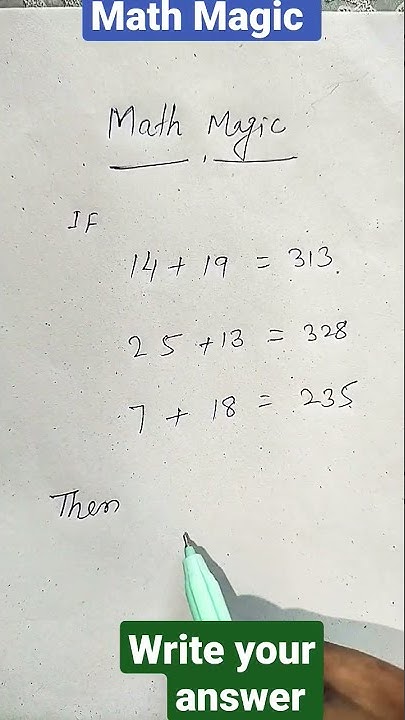 Math Magic
Math Magic
IF
14 + 19 = 313
25 + 13 = 328
7 + 18 = 235
Then
Write your
answer